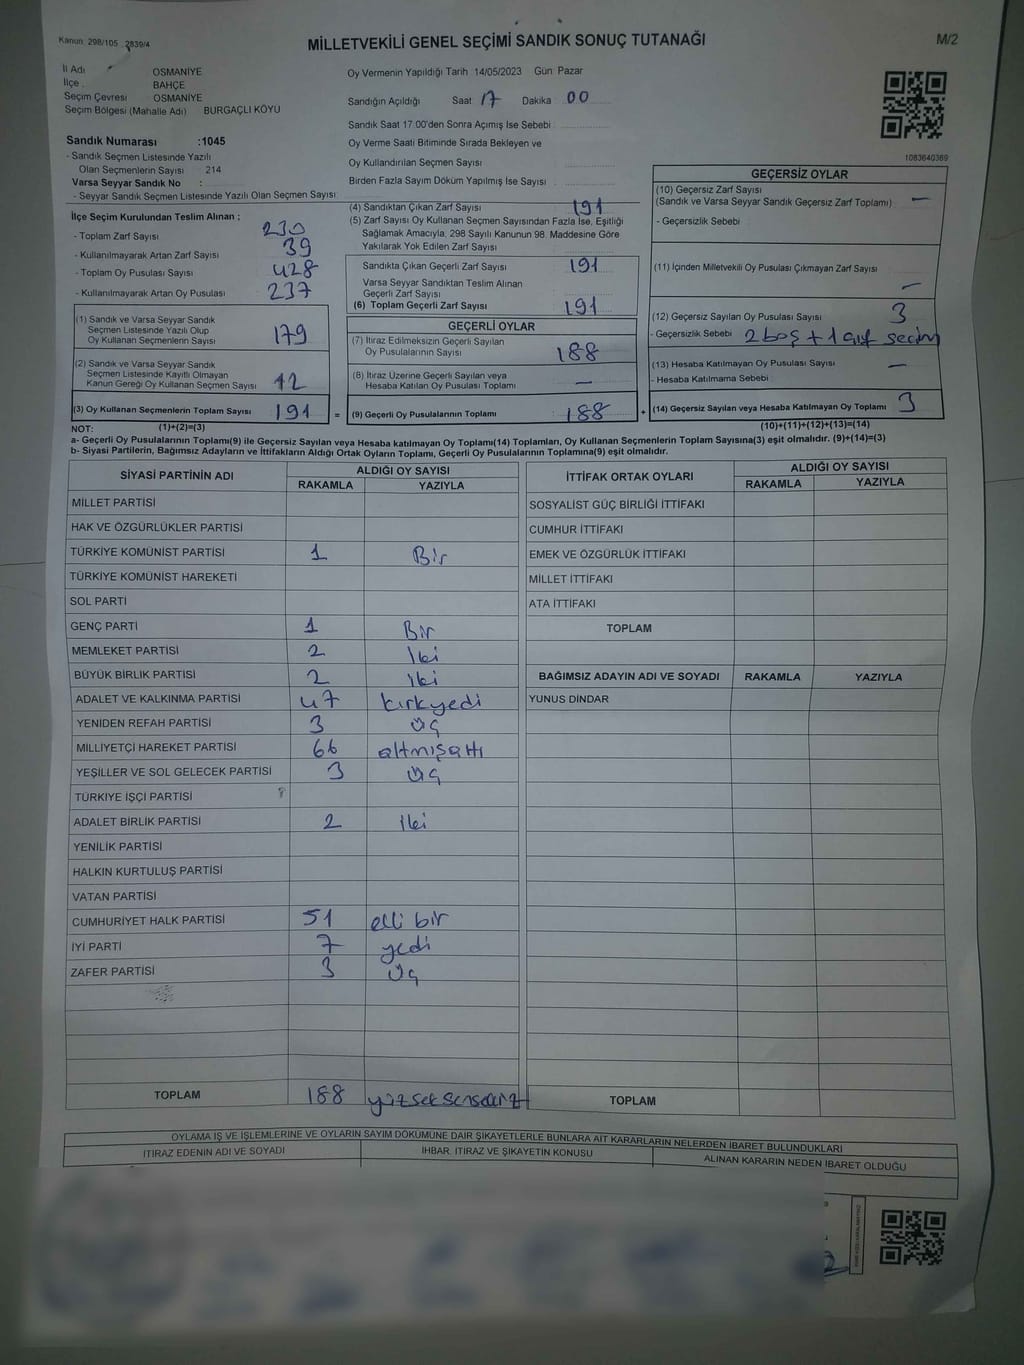 Kanun 298/105 2839/4
MİLLETVEKİLİ GENEL SEÇİMİ SANDIK SONUÇ TUTANAĞI
M/2
İl Adı OSMANİYE
İlçe BAHÇE
Seçim Çevresi OSMANİYE
Seçim Bölgesi (Mahalle Adı) BURGAÇLI KÖYÜ
Sandık Numarası :1045
- Sandık Seçmen Listesinde Yazılı
Olan Seçmenlerin Sayısı : 214
Varsa Seyyar Sandık No :
- Seyyar Sandık Seçmen Listesinde Yazılı Olan Seçmen Sayısı:
Oy Vermenin Yapıldığı Tarih 14/05/2023 Gün Pazar
Sandığın Açıldığı Saat 17 Dakika 00
Sandık Saat 17.00'den Sonra Açımış İse Sebebi :
Oy Verme Saati Bitiminde Sırada Bekleyen ve
Oy Kullandırılan Seçmen Sayısı
Birden Fazla Sayım Döküm Yapılmış İse Sayısı :
1083640369
İlçe Seçim Kurulundan Teslim Alınan ;
- Toplam Zarf Sayısı 230
- Kullanılmayarak Artan Zarf Sayısı 39
- Toplam Oy Pusulası Sayısı 428
- Kullanılmayarak Artan Oy Pusulası 237
(1) Sandık ve Varsa Seyyar Sandık
Seçmen Listesinde Yazılı Olup
Oy Kullanan Seçmenlerin Sayısı 179
(2) Sandık ve Varsa Seyyar Sandık
Seçmen Listesinde Kayıtlı Olmayan
Kanun Gereği Oy Kullanan Seçmen Sayısı 12
(3) Oy Kullanan Seçmenlerin Toplam Sayısı 191 =
(4) Sandıktan Çıkan Zarf Sayısı 191
(5) Zarf Sayısı Oy Kullanan Seçmen Sayısından Fazla İse, Eşitliği
Sağlamak Amacıyla, 298 Sayılı Kanunun 98. Maddesine Göre
Yakılarak Yok Edilen Zarf Sayısı
Sandıkta Çıkan Geçerli Zarf Sayısı 191
Varsa Seyyar Sandıktan Teslim Alınan
Geçerli Zarf Sayısı
(6) Toplam Geçerli Zarf Sayısı 191
GEÇERLİ OYLAR
(7) İtiraz Edilmeksizin Geçerli Sayılan
Oy Pusulalarının Sayısı 188
(8) İtiraz Üzerine Geçerli Sayılan veya
Hesaba Katılan Oy Pusulası Toplamı –
(9) Geçerli Oy Pusulalarının Toplamı 188 +
GEÇERSİZ OYLAR
(10) Geçersiz Zarf Sayısı
(Sandık ve Varsa Seyyar Sandık Geçersiz Zarf Toplamı) –
- Geçersizlik Sebebi
(11) İçinden Milletvekili Oy Pusulası Çıkmayan Zarf Sayısı
–
(12) Geçersiz Sayılan Oy Pusulası Sayısı 3
- Geçersizlik Sebebi 2 boş + 1 çift seçim
(13) Hesaba Katılmayan Oy Pusulası Sayısı –
- Hesaba Katılmama Sebebi
(14) Geçersiz Sayılan veya Hesaba Katılmayan Oy Toplamı 3
NOT: (1)+(2)=(3)
(10)+(11)+(12)+(13)=(14)
a- Geçerli Oy Pusulalarının Toplamı(9) ile Geçersiz Sayılan veya Hesaba katılmayan Oy Toplamı(14) Toplamları, Oy Kullanan Seçmenlerin Toplam Sayısına(3) eşit olmalıdır. (9)+(14)=(3)
b- Siyasi Partilerin, Bağımsız Adayların ve İttifakların Aldığı Ortak Oyların Toplamı, Geçerli Oy Pusulalarının Toplamına(9) eşit olmalıdır.
SİYASİ PARTİNİN ADI ALDIĞI OY SAYISI
RAKAMLA YAZIYLA
MİLLET PARTİSİ
HAK VE ÖZGÜRLÜKLER PARTİSİ
TÜRKİYE KOMÜNİST PARTİSİ 1 Bir
TÜRKİYE KOMÜNİST HAREKETİ
SOL PARTİ
GENÇ PARTİ 1 Bir
MEMLEKET PARTİSİ 2 İki
BÜYÜK BİRLİK PARTİSİ 2 İki
ADALET VE KALKINMA PARTİSİ 47 kırkyedi
YENİDEN REFAH PARTİSİ 3 üç
MİLLİYETÇİ HAREKET PARTİSİ 66 altmışaltı
YEŞİLLER VE SOL GELECEK PARTİSİ 3 üç
TÜRKİYE İŞÇİ PARTİSİ
ADALET BİRLİK PARTİSİ 2 iki
YENİLİK PARTİSİ
HALKIN KURTULUŞ PARTİSİ
VATAN PARTİSİ
CUMHURİYET HALK PARTİSİ 51 elli bir
İYİ PARTİ 7 yedi
ZAFER PARTİSİ 3 üç
TOPLAM 188 yüzseksensekiz
İTTİFAK ORTAK OYLARI ALDIĞI OY SAYISI
RAKAMLA YAZIYLA
SOSYALİST GÜÇ BİRLİĞİ İTTİFAKI
CUMHUR İTTİFAKI
EMEK VE ÖZGÜRLÜK İTTİFAKI
MİLLET İTTİFAKI
ATA İTTİFAKI
TOPLAM
BAĞIMSIZ ADAYIN ADI VE SOYADI RAKAMLA YAZIYLA
YUNUS DİNDAR
TOPLAM
OYLAMA İŞ VE İŞLEMLERİNE VE OYLARIN SAYIM DÖKÜMÜNE DAİR ŞİKAYETLERLE BUNLARA AİT KARARLARIN NELERDEN İBARET BULUNDUKLARI
İTİRAZ EDENİN ADI VE SOYADI İHBAR, İTİRAZ VE ŞİKAYETİN KONUSU ALINAN KARARIN NEDEN İBARET OLDUĞU